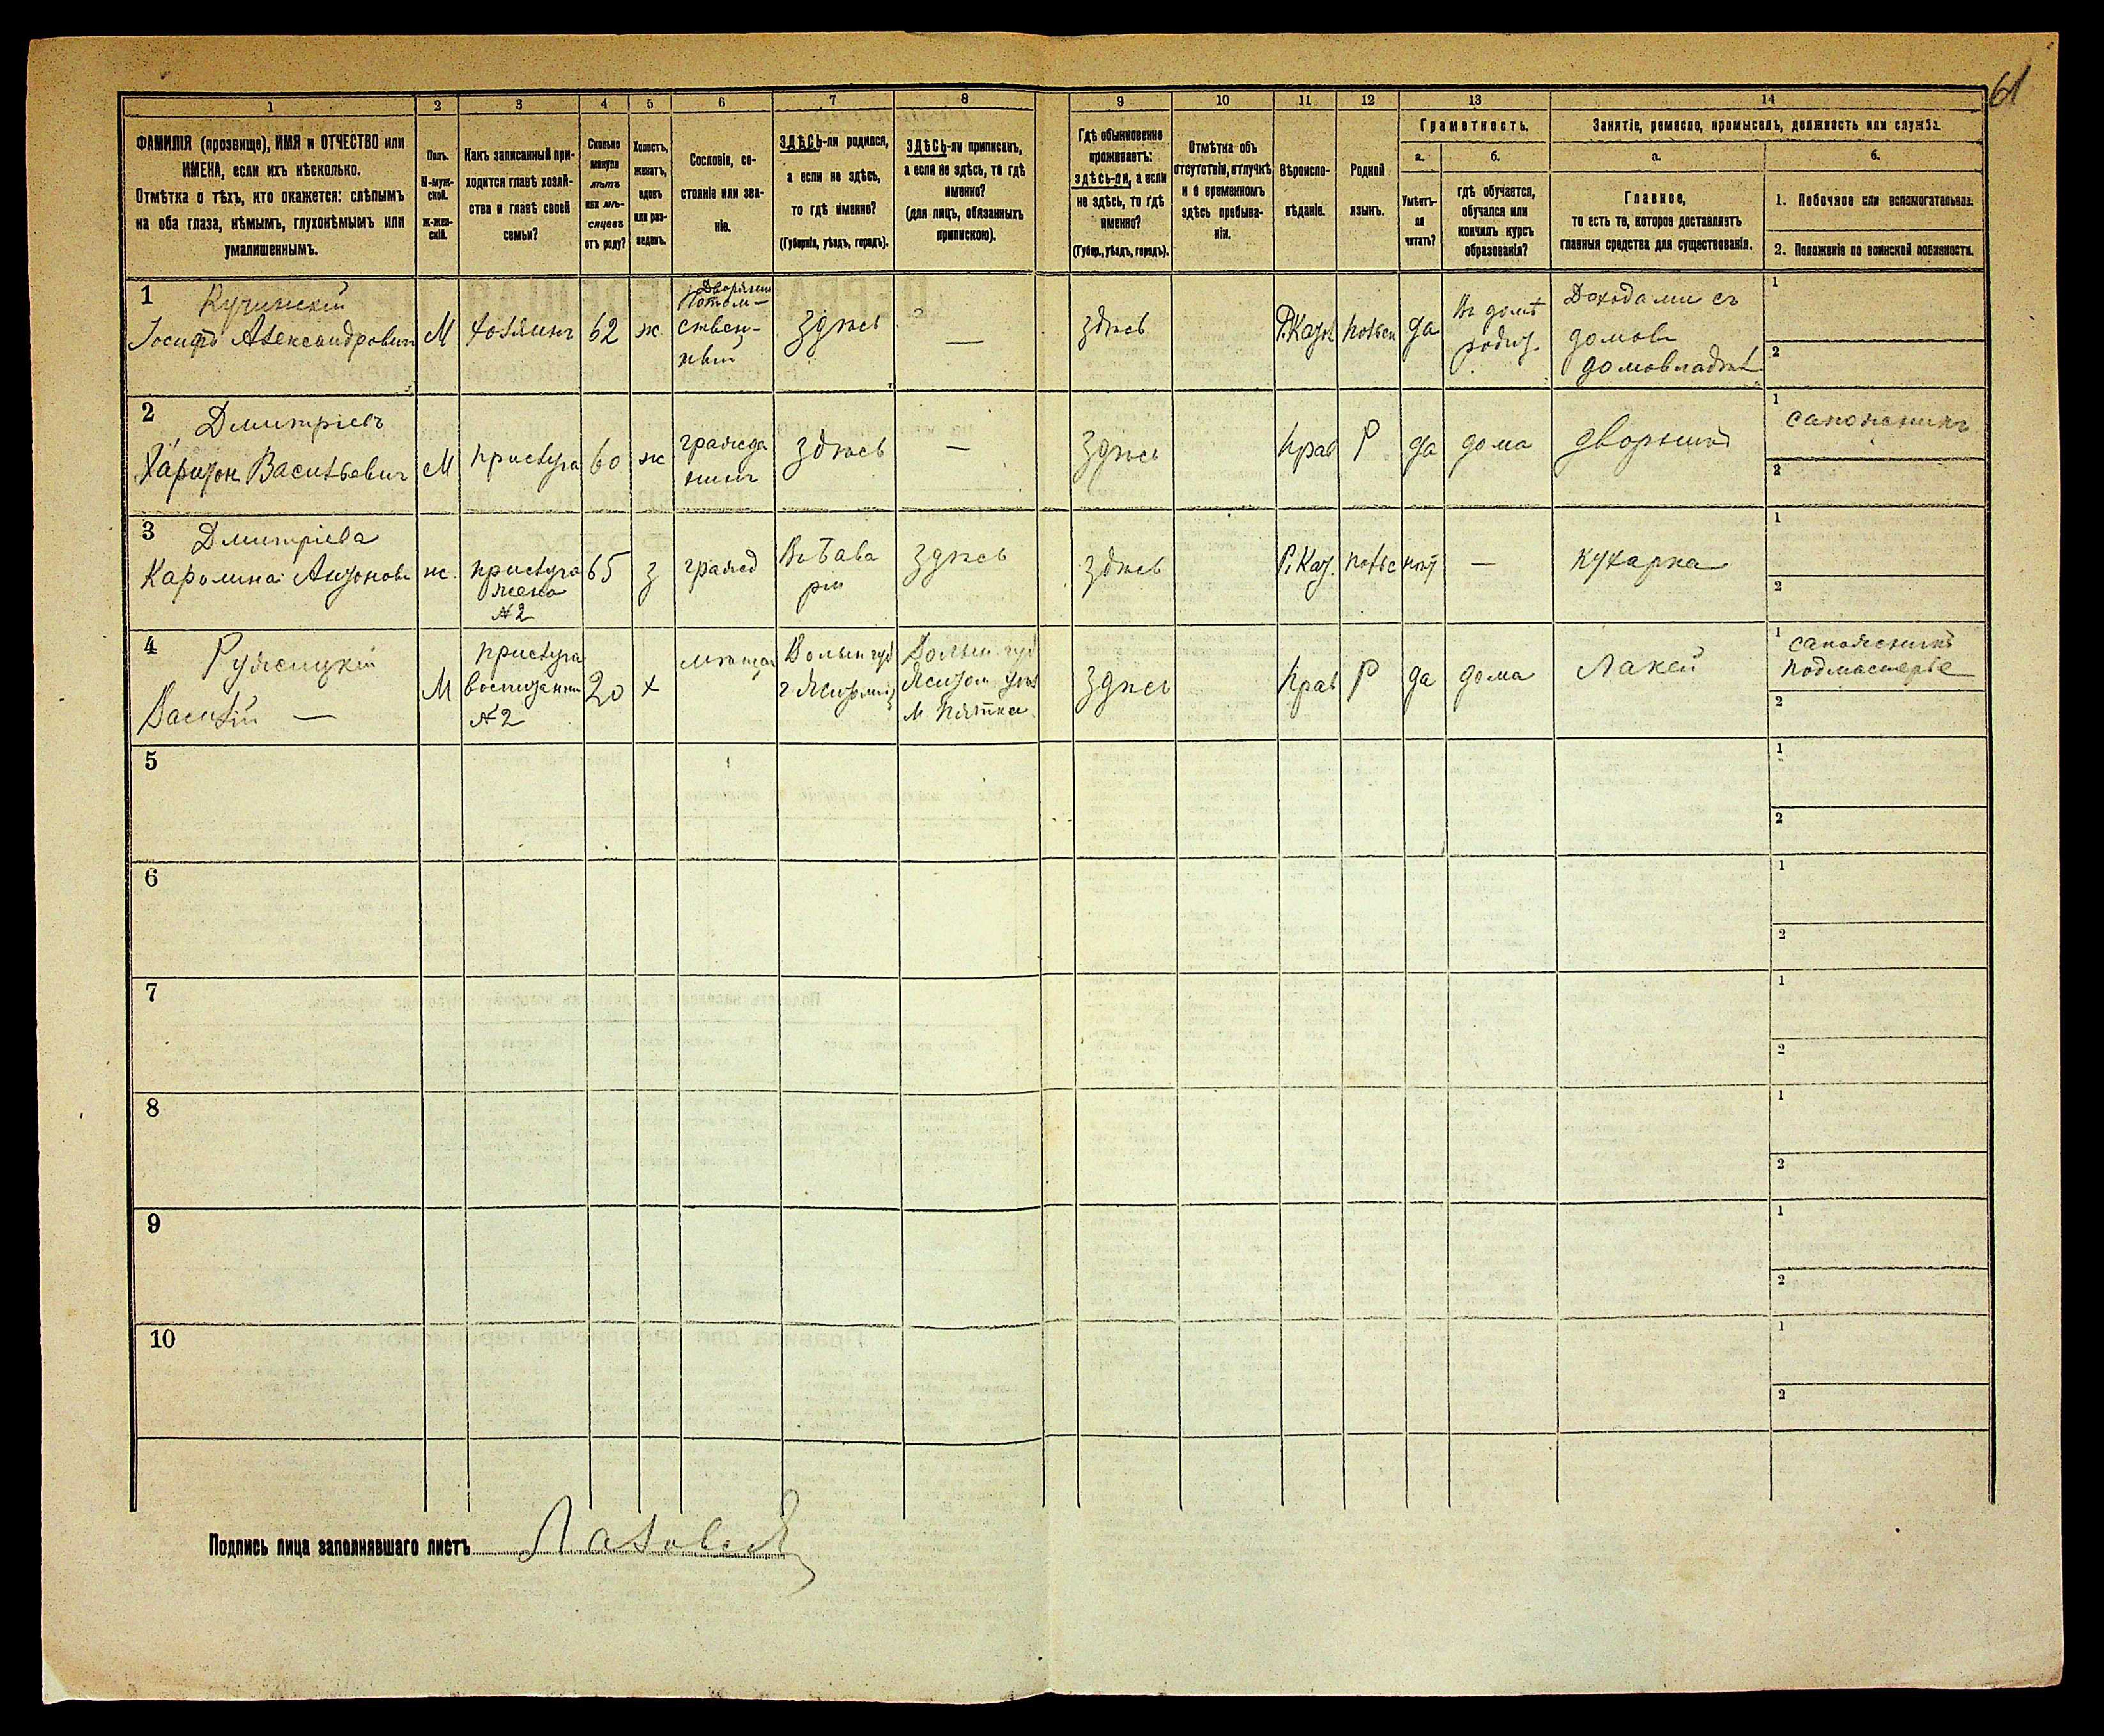 61
1 2 3 4 5 6 7 8 9 10 11 12 13 14
ФАМИЛІЯ (прозвище), ИМЯ и ОТЧЕСТВО или
ИМЕНА, если ихъ нѣсколько.
Отмѣтка о тѣхъ, кто окажется: слѣпымъ
на оба глаза, нѣмымъ, глухонѣмымъ или
умалишеннымъ.
Полъ.
М-муж-
ской.
ж-жен-
скій.
Какъ записанный при-
ходится главѣ хозяй-
ства и главѣ своей
семьи?
Сколько
минуло
лѣтъ
или мѣ-
сяцевъ
отъ роду?
Холостъ,
женатъ,
вдовъ
или раз-
веденъ.
Сословіе, со-
стояніе или зва-
ніе.
ЗДѢСЬ-ли родился,
а если не здѣсь,
то гдѣ именно?
(Губернія, уѣздъ, городъ).
ЗДѢСЬ-ли приписанъ,
а если не здѣсь, то гдѣ
именно?
(для лицъ, обязанныхъ
припискою).
Гдѣ обыкновенно
проживаетъ:
здѣсь-ли, а если
не здѣсь, то гдѣ
именно?
(Губер., уѣздъ, городъ).
Отмѣтка объ
отсутствіи, отлучкѣ
и о временномъ
здѣсь пребыва-
ніи.
Вѣроиспо-
вѣданіе.
Родной
языкъ.
Грамотность.
а.
Умѣетъ-
ли
читать?
б.
гдѣ обучается,
обучался или
кончилъ курсъ
образованія?
Занятіе, ремесло, промыселъ, должность или служба.
а.
Главное,
то есть то, которое доставляетъ
главныя средства для существованія.
б.
1. Побочное или вспомогательное.
2. Положеніе по воинской повинности.
1
Кучинскій
Іосифъ Александровичъ
М
хозяинъ
62
ж.
Дворянинъ
Потом-
ствен-
ный
здѣсь
—
здѣсь
Р.Катол
польск
да
Въ домѣ
родит.
Доходами съ
домовъ
домовладѣл
1
2
2
Дмитріевъ
Харитон Васильевичъ
М
прислуга
60
ж
гражда
нинъ
здѣсь
—
здѣсь
прав
Р
да
дома
дворникъ
1
сапожникъ
2
3
Дмитріева
Каролина Антонова
ж.
прислуга
жена
№2
65
з
гражд
Въ Бава
ріи
здѣсь
здѣсь
Р. Кат.
польс
нѣт
—
кухарка
1
2
4
Ружицкій
Василій —
М
прислуга
воспитанник
№2
20
х
мѣщан
Волын губ
г Житомір
Волын. губ
Житом уѣз
м Пятка
здѣсь
прав
Р
да
дома
Лакей
1
сапожникъ
подмастерье
2
5
1
2
6
1
2
7
1
2
8
1
2
9
1
2
10
1
2
Подпись лица заполнявшаго листъ